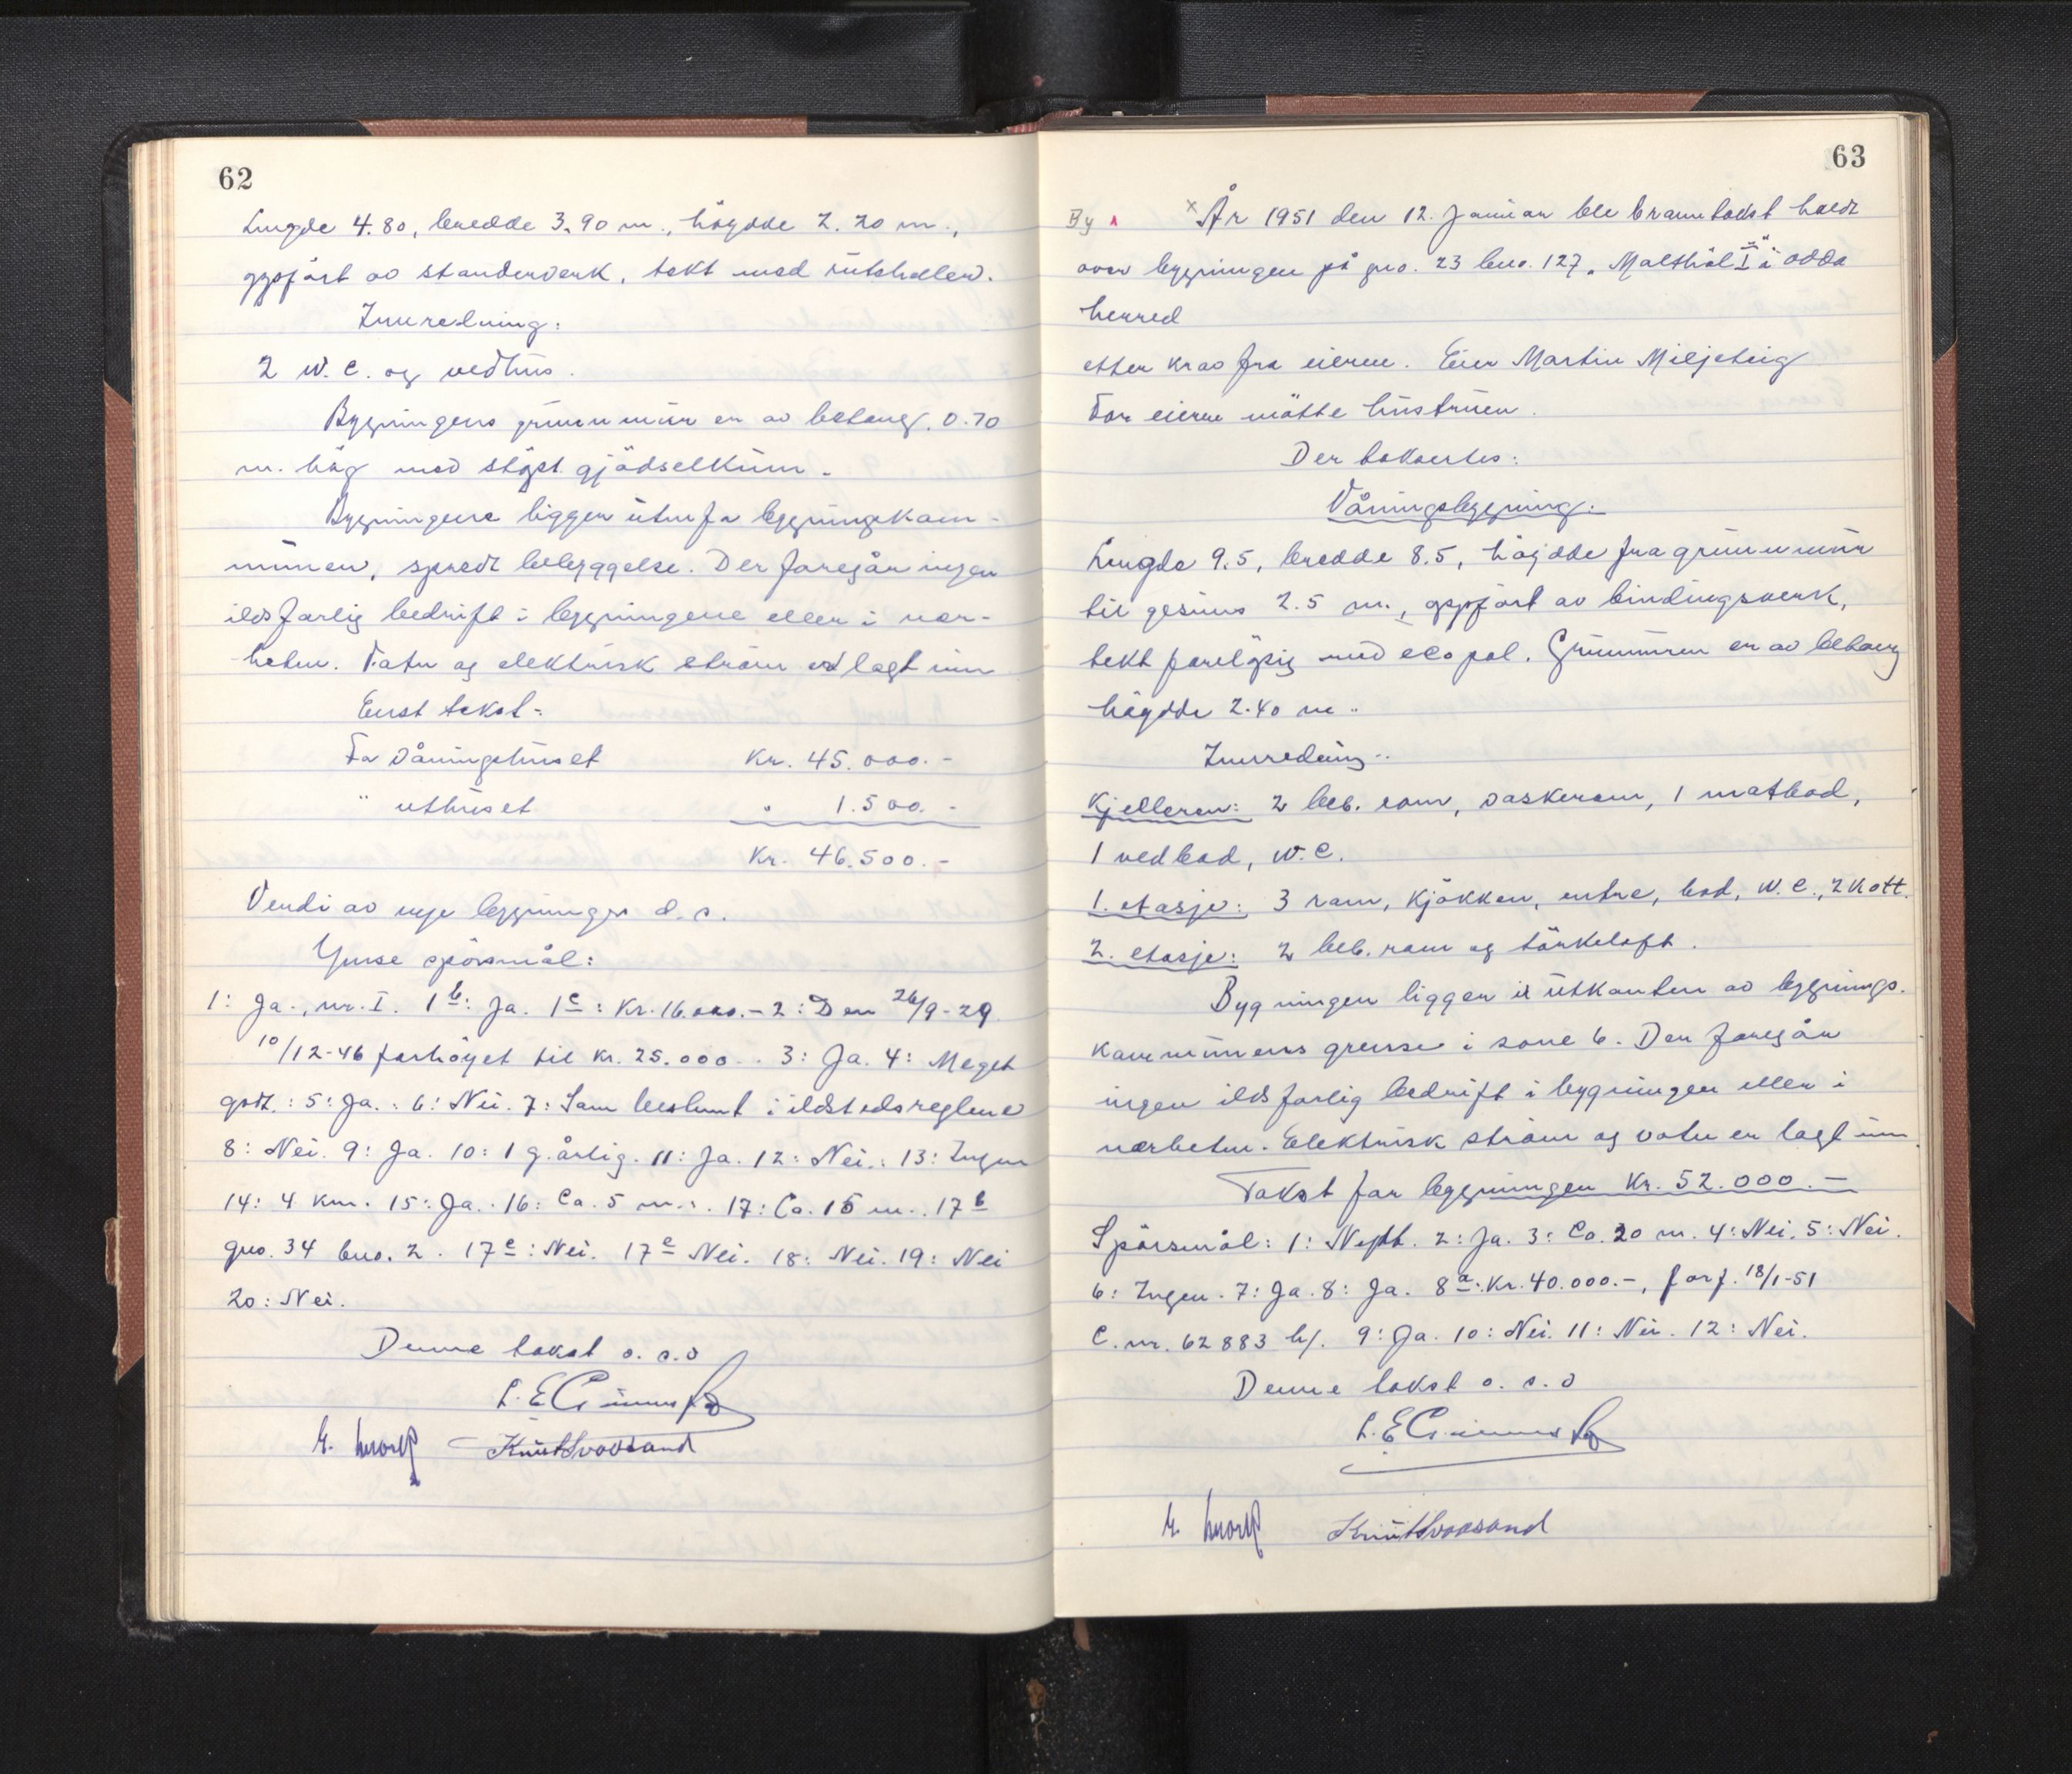 62
Lengde 4.80, bredde 3.90 m., høydde 2.20 m.,
oppført av standerverk, tekt med ruteheller.
Innredning:
2 W.C. og vedhus.
Bygningens grunnmur er av betong, 0.70
m. høg med støpt gjødselkum.
Bygningene ligger utenfor bygningskom-
munen, spredt bebyggelse. Der foregår ingen
ildsfarlig bedrift i bygningene eller i nær-
heten. Vatn og elektrisk strøm er lagt inn
Enst takst:
For våningshuset Kr. 45.000.-
" uthuset " 1.500.-
Kr. 46.500.-
Verdi av nye bygninger d.s.
Ymse spørsmål:
1: Ja., nr. I. 1b: Ja. 1c: Kr. 16.000.- 2: Den 26/9-29
10/12-46 forhøyet til kr. 25.000.. 3: Ja. 4: Meget
godt.: 5: Ja.: 6: Nei. 7: Som bestemt i ildstedsreglene
8: Nei. 9: Ja. 10: 1 g. årlig. 11: Ja. 12: Nei.: 13: Ingen
14: 4 km. 15: Ja.. 16: Ca. 5 m.:. 17: Ca. 15 m.. 17b
gno. 34 bno. 2. 17c: Nei. 17e Nei. 18: Nei. 19: Nei
20: Nei.
Denne takst o.s.v
L. E.
Knut
63
By x År 1951 den 12. Januar ble branntakst holdt
over bygningen på gno. 23 bno. 127 „Malthøl I" i Odda
herred
etter krav fra eieren. Eier Martin Miljeteig
For eieren møtte hustruen.
Der takseres:
Våningsbygning:
Lengde 9.5, bredde 8.5, høydde fra grunnmur
til gesims 2.5 m., oppført av bindingsverk,
tekt foreløpig med ecopal. Grunnmuren er av betong
høydde 2.40 m..
Innredning..
Kjelleren: 2 beb. rom, vaskerom, 1 matbod,
1 vedbod, W.C.
1. etasje: 3 rom, kjøkken, entre, bod, W.C., 2 kott.
2. etasje: 2 beb. rom og tørkeloft.
Bygningen ligger i utkanten av bygnings-
kommunens grense i sone 6. Der foregår
ingen ildsfarlig bedrift i bygningen eller i
nærheten. Elektrisk strøm og vatn er lagt inn.
Takst for bygningen Kr. 52.000.-
Spørsmål: 1: Nytt. 2: Ja. 3: Ca. 20 m. 4: Nei. 5: Nei.
6: Ingen. 7: Ja. 8: Ja. 8a: Kr. 40.000.-, forf. 18/1-51
C. nr. 62883 b/. 9: Ja. 10: Nei. 11: Nei. 12: Nei.
Denne takst o.s.v
L. E.
Knut